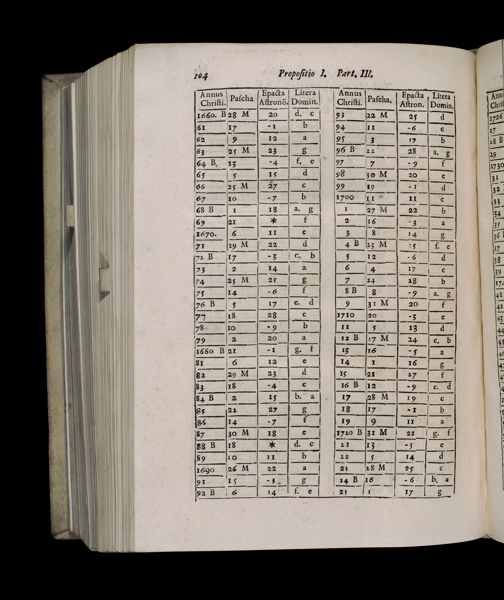 104 Propositio I. Part. III.
Annus Christi. Pascha Epacta Astronõ. Litera Domin.
1660. B 28 M 20 d. c
61 17 -1 b
62 9 12 a
63 25 M 23 g
64 B. 13 -4 f. e
65 5 15 d
66 25 M 27 c
67 10 -7 b
68 B 1 18 a. g
69 21 * f
1670. 6 11 e
71 29 M 22 d
72 B 17 -3 c. b
73 2 14 a
74 25 M 25 g
75 14 -6 f
76 B 5 17 e. d
77 18 28 c
78 10 -9 b
79 2 20 a
1680 B 21 -1 g. f
81 6 12 e
82 29 M 23 d
83 18 -4 c
84 B 2 15 b. a
85 22 27 g
86 14 -7 f
87 30 M 18 e
88 B 18 * d. c
89 10 11 b
1690 26 M 22 a
91 15 -3 g
92 B 6 14 f. e
Annus Christi. Pascha. Epacta Astron. Litera Domin.
93 22 M 25 d
94 11 -6 c
95 3 17 b
96 B 22 28 a. g
97 7 -9 f
98 30 M 20 e
99 19 -1 d
1700 11 11 c
1 27 M 22 b
2 16 -3 a
3 8 14 g
4 B 23 M -5 f. e
5 12 -6 d
6 4 17 c
7 24 28 b
8 B 8 -9 a. g
9 31 M 20 f
1710 20 -3 e
11 5 13 d
12 B 27 M 24 c. b
15 16 -5 a
14 1 16 g
15 21 27 f
16 B 12 -9 e. d
17 28 M 19 c
18 17 -1 b
19 9 11 a
1720 B 31 M 22 g. f
21 13 -3 e
22 5 14 d
23 28 M 25 c
24 B 16 -6 b. a
25 1 17 g
Annus
Christi
1726
27
28 B
29
1730
31
32
33
34
35